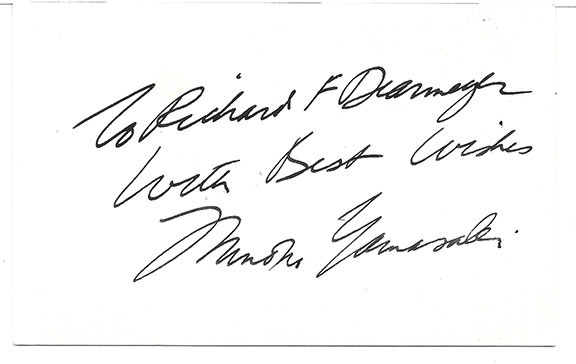 To Richard F Dearmeyer
With Best Wishes
Minoru Yamasaki